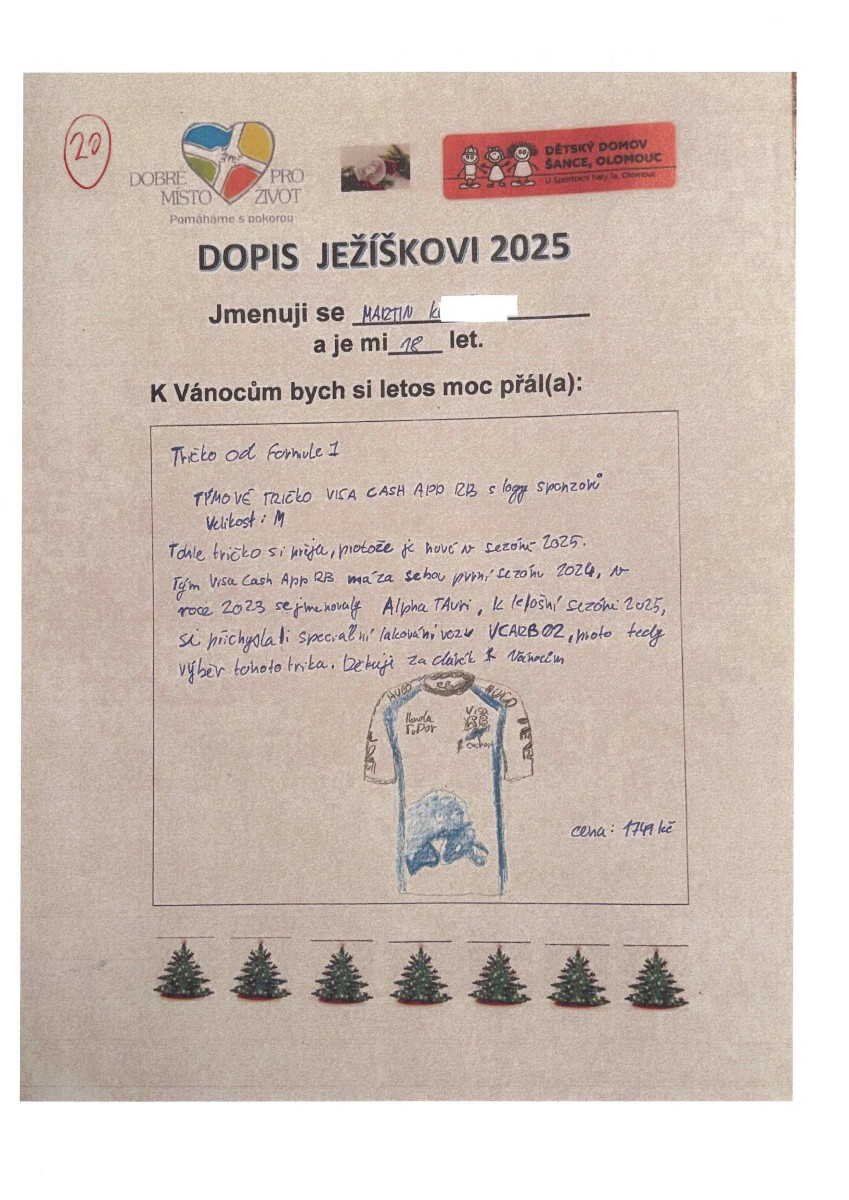 20
DOBRÉ PRO
MÍSTO ŽIVOT
Pomáháme s pokorou
DĚTSKÝ DOMOV
ŠANCE, OLOMOUC
U Sportovní haly 1a, Olomouc
DOPIS JEŽÍŠKOVI 2025
Jmenuji se MARTIN K
a je mi 18 let.
K Vánocům bych si letos moc přál(a):
Tričko od Formule 1
TÝMOVÉ TRIČKO VISA CASH APP RB s logy sponzorů
Velikost: M
Tohle tričko si přeju, protože je nové v sezóně 2025.
Tým Visa Cash App RB má za sebou první sezónu 2024, v
roce 2023 se jmenovaly Alpha TAuri, K letošní sezóni 2025,
si přichystali speciální lakování vozu VCARB02, proto tedy
výběr tohoto trika. Děkuji za dárek k Vánocům
HUGO RB HUGO
Honda VISA
TUDOR RB
Cashapp
cena: 1749 kč